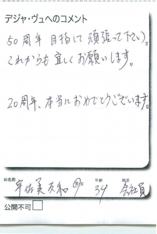 デジャ・ヴュへのコメント
50周年目指して頑張って下さい。
これからも宜しくお願いします。
20周年、本当におめでとうございます。
お名前
年齢 34
職業 会社員
公開不可□